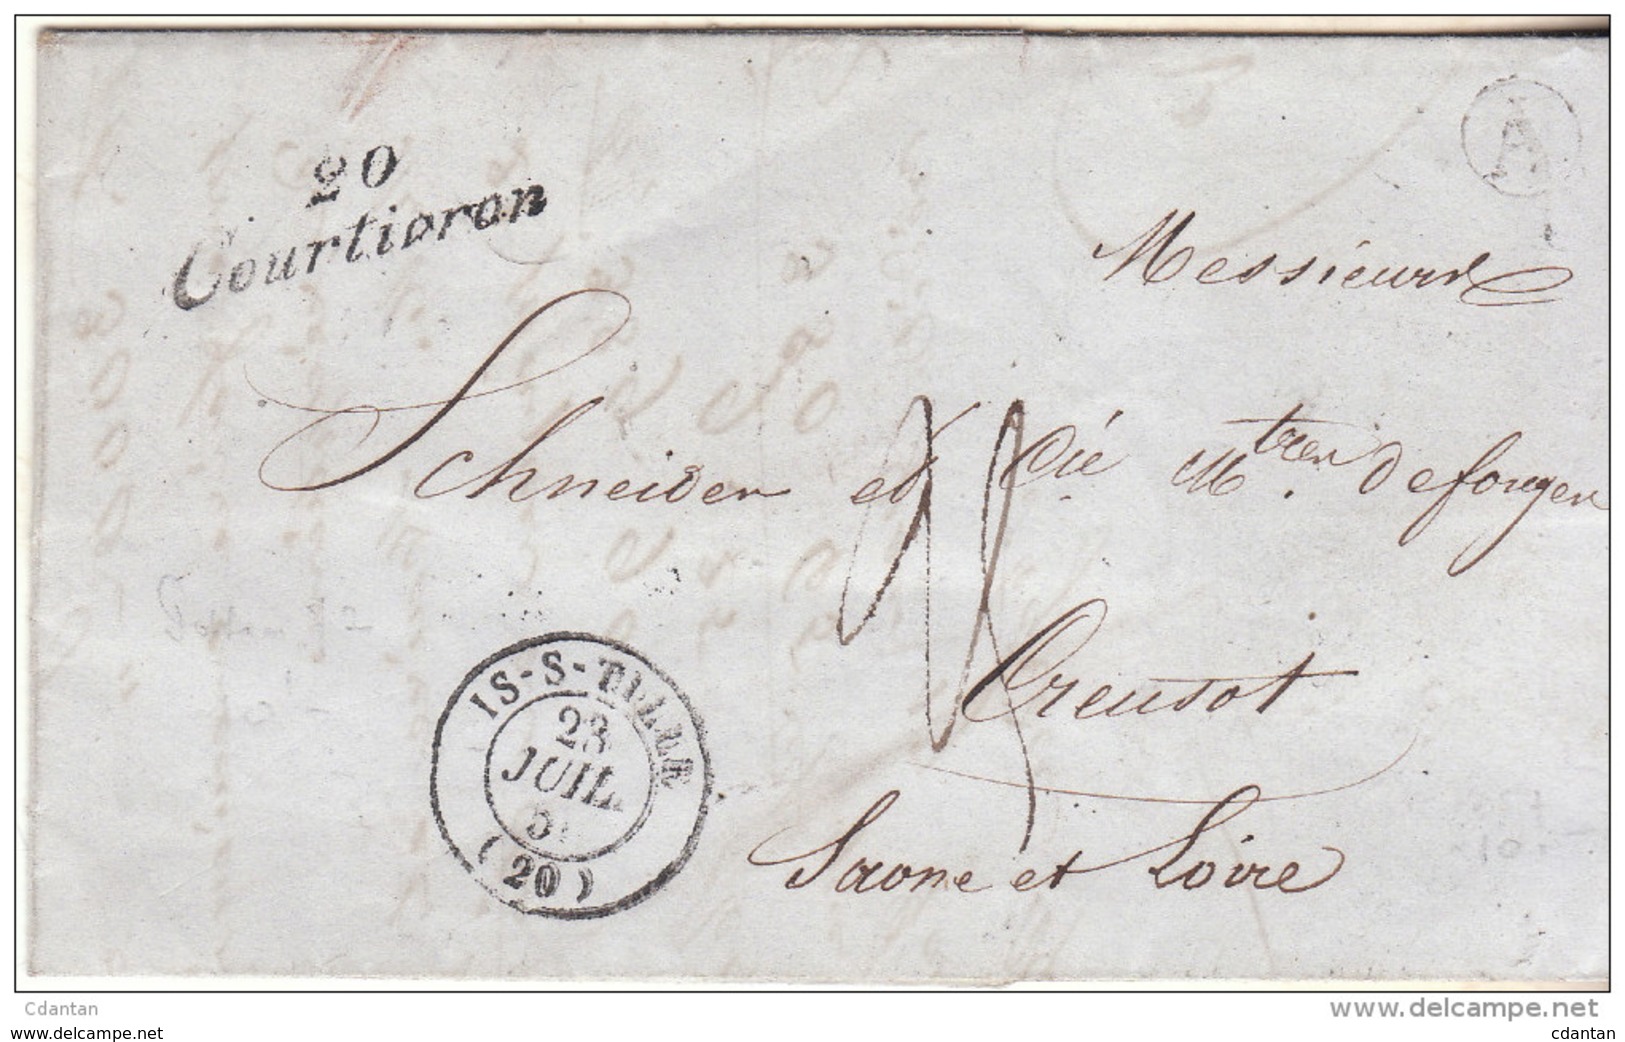 20
Courtioron
A
Messieurs
Schneider et Cie Mtres de forges
Creusot
Saone et Loire
IS-S-TILLER
23
JUIL.
5
(20)
Cdantan
www.delcampe.net
www.delcampe.com
cdantan